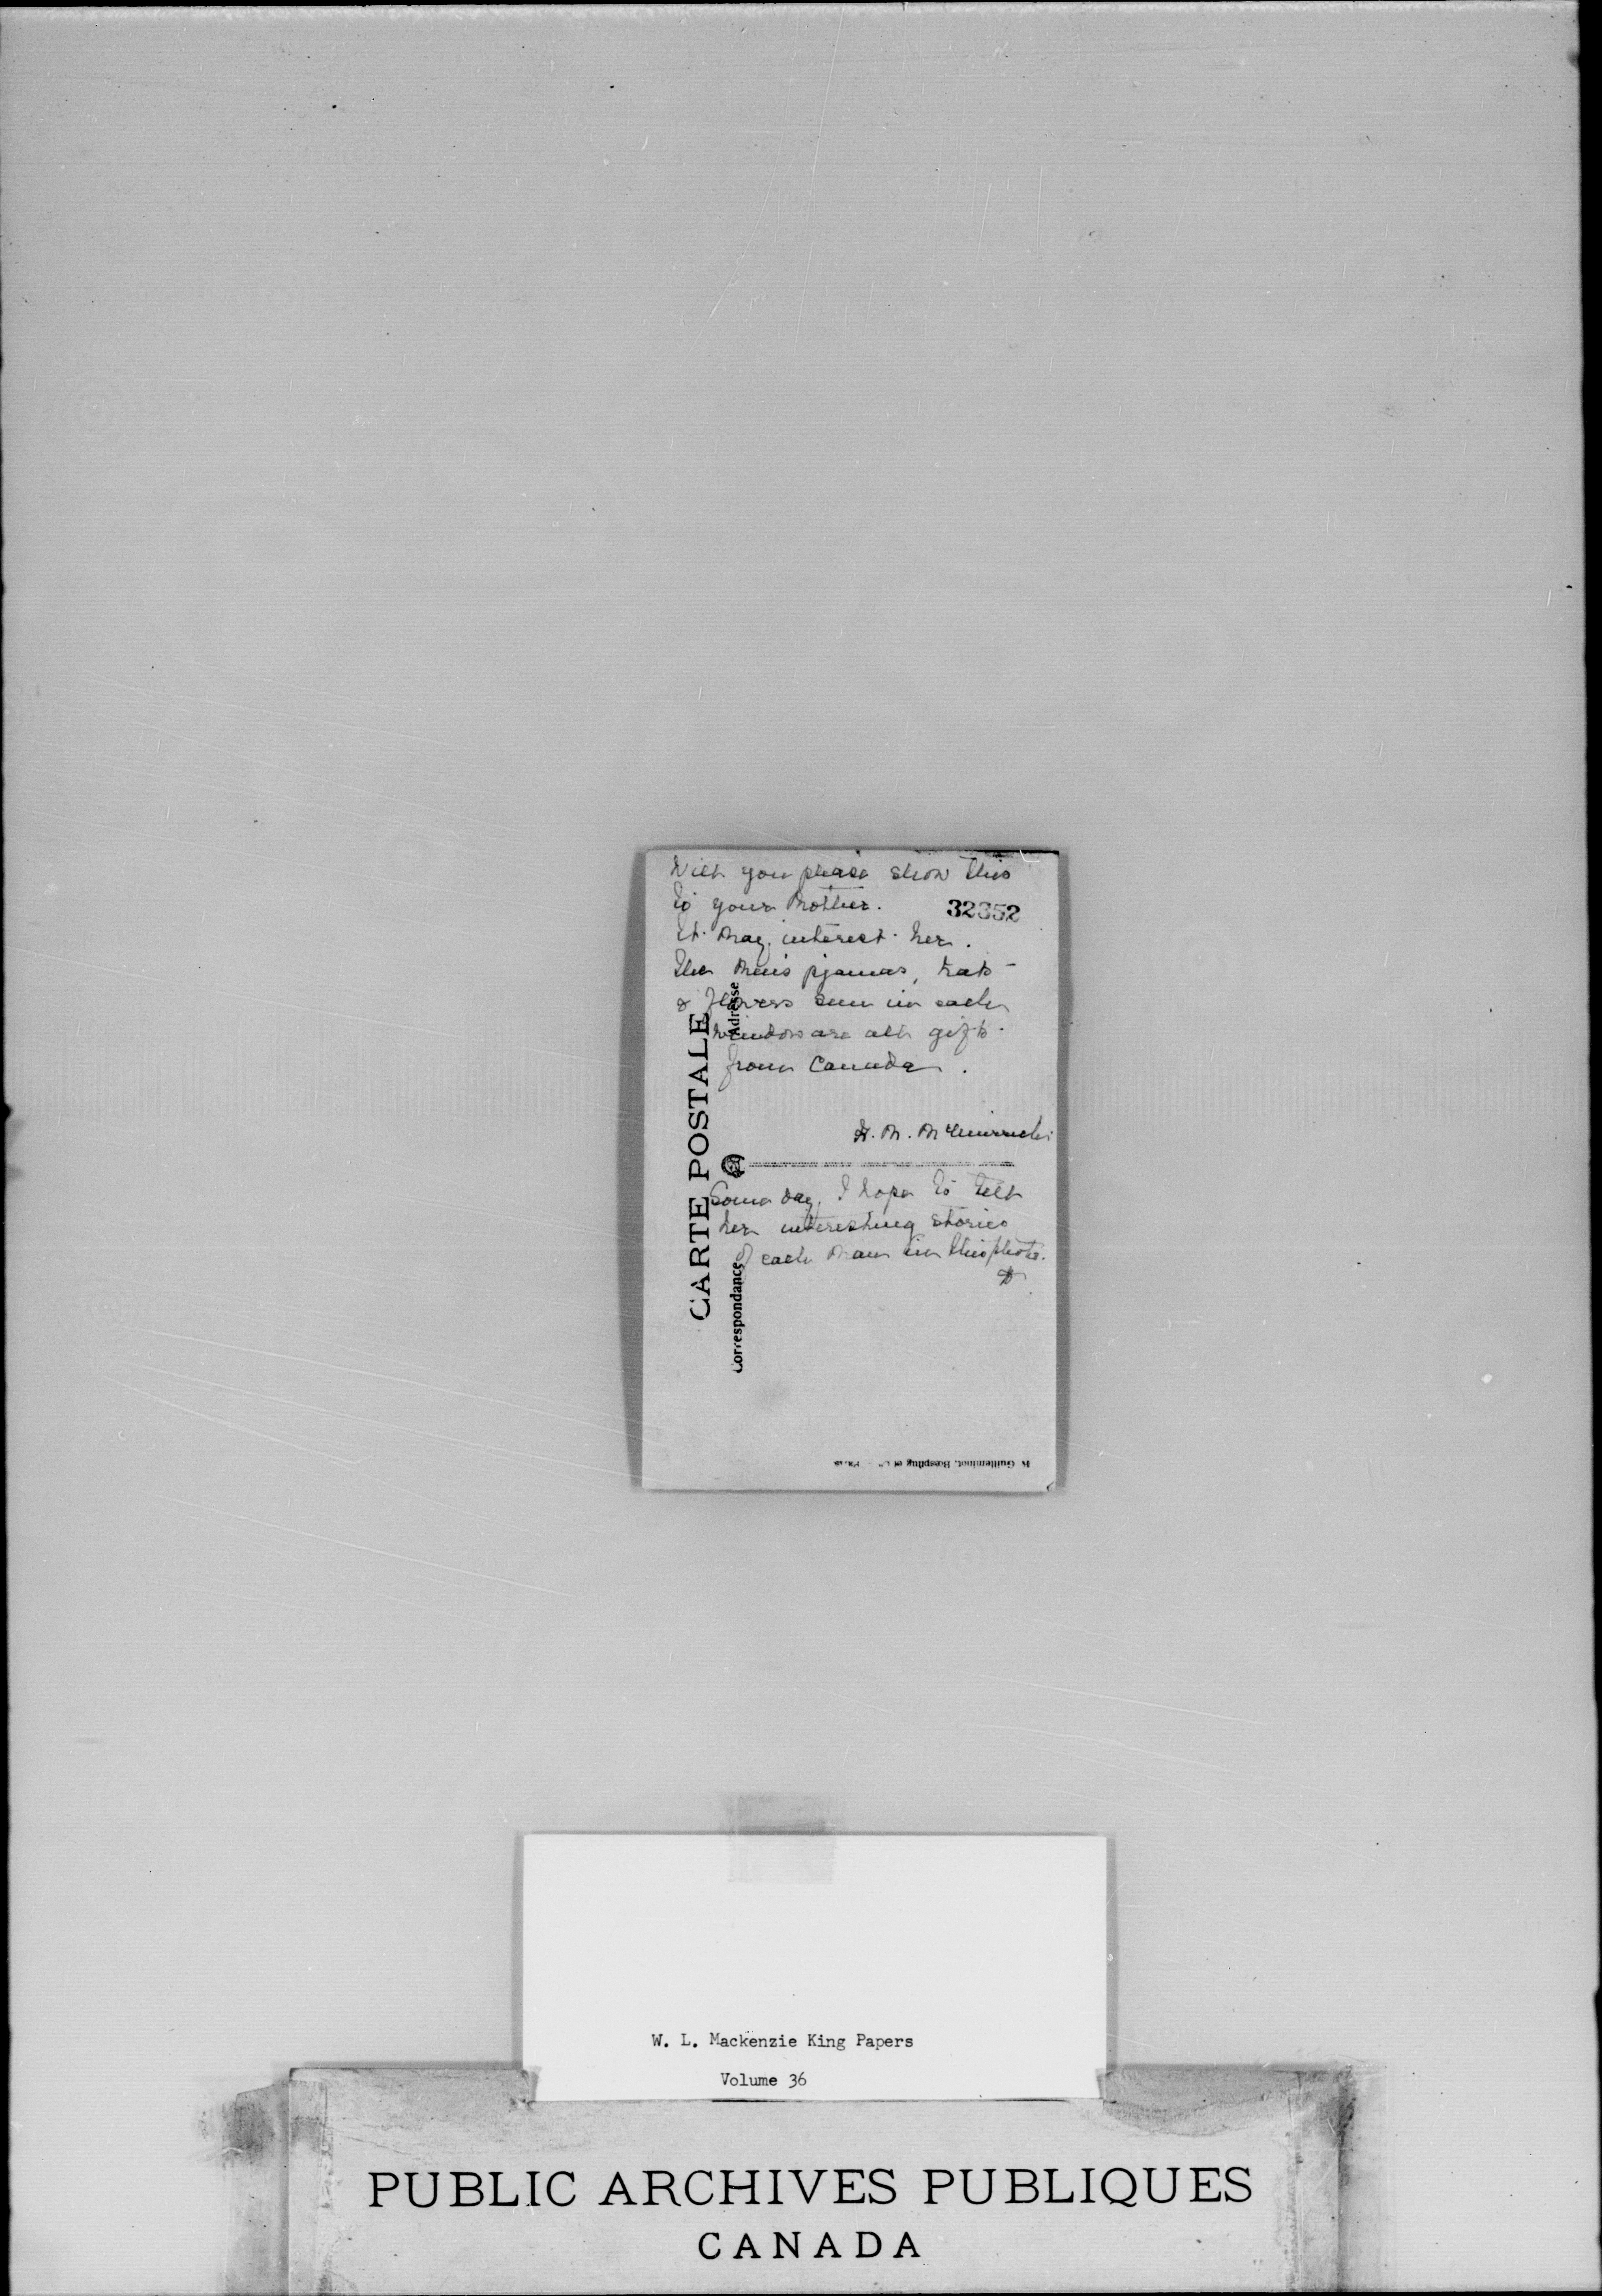 Will you please show this
to your Mother.
32352
It may interest her.
The men's pjamas, hats
& flowers seen in each
window are all gifts
from Canada.
Some day, I hope to tell
her interesting stories
of each man in this photo.
CARTE POSTALE
Correspondance
Adresse
R. Guilleminot, Bœspflug et Cie Paris
W. L. Mackenzie King Papers
Volume 36
PUBLIC ARCHIVES PUBLIQUES
CANADA